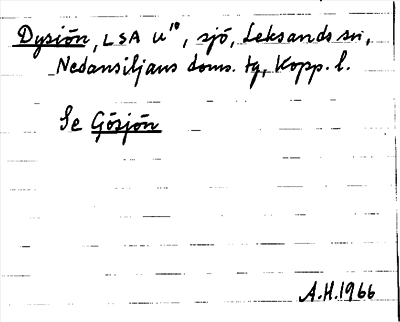 Dysiön, LSA U¹⁰, sjö, Leksands sn,
Nedansiljans doms. tg, Kopp. l.
Se Gösjön
A.H. 1966